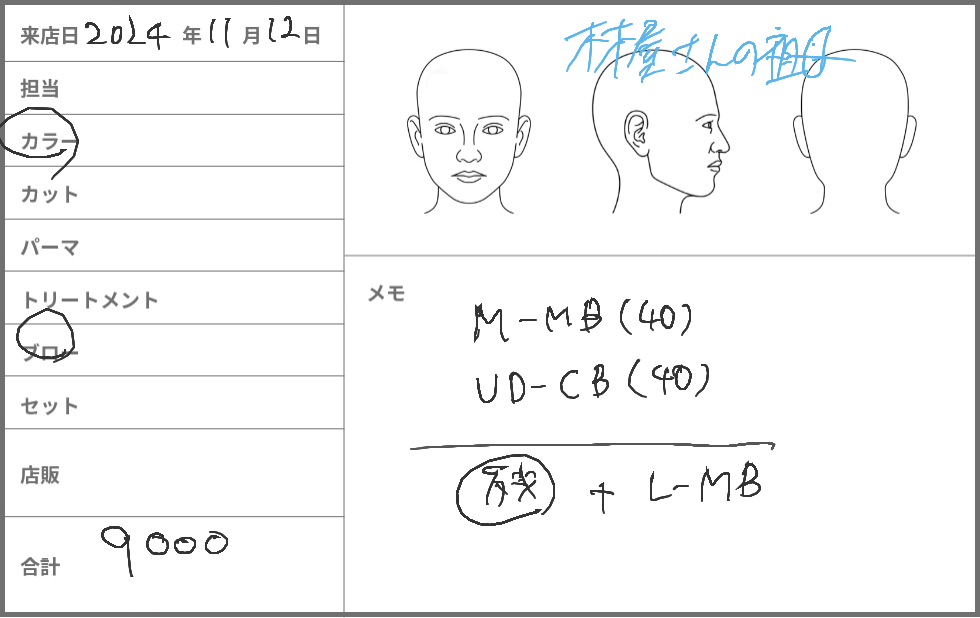 来店日 2024 年 11 月 12 日
担当
カラー
カット
パーマ
トリートメント
ブロー
セット
店販
合計 9000
材屋さんの祖母
メモ
M-MB (40)
UD-CB (40)
残 + L-MB